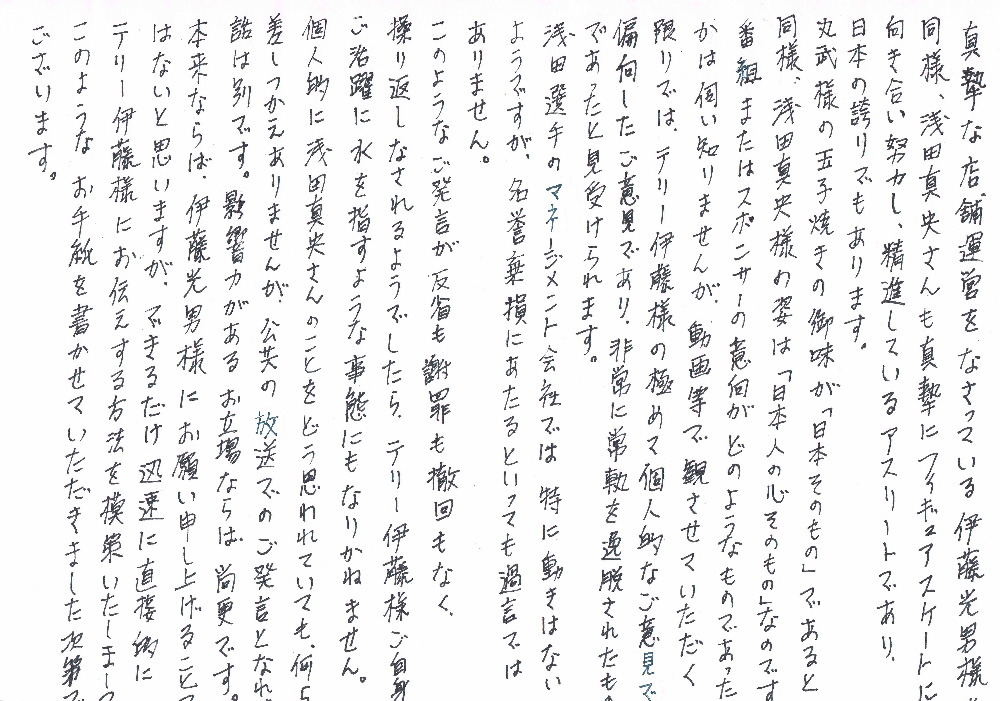 真摯な店舗運営をなさっている伊藤光男様
同様、浅田真央さんも真摯にフィギュアスケートに
向き合い努力し、精進しているアスリートであり、
日本の誇りでもあります。
丸武様の玉子焼きの御味が「日本そのもの」であると
同様、浅田真央様の姿は「日本人の心そのもの」なのです
番組またはスポンサーの意向がどのようなものであった
かは伺い知りませんが、動画等で観させていただく
限りでは、テリー伊藤様の極めて個人的なご意見で
偏向したご意見であり、非常に常軌を逸脱されたもの
であったと見受けられます。
浅田選手のマネージメント会社では特に動きはない
ようですが、名誉棄損にあたるといっても過言では
ありません。
このようなご発言が反省も謝罪も撤回もなく、
操り返しなされるようでしたら、テリー伊藤様ご自身
ご活躍に水を指すような事態にもなりかねません。
個人的に浅田真央さんのことをどう思われていても、何ら
差しつかえありませんが、公共の放送でのご発言となれ
話は別です。影響力があるお立場ならば、尚更です。
本来ならば、伊藤光男様にお願い申し上げること
はないと思いますが、できるだけ迅速に直接的に
テリー伊藤様にお伝えする方法を模索いたしまして
このようなお手紙を書かせていただきました次第で
ございます。